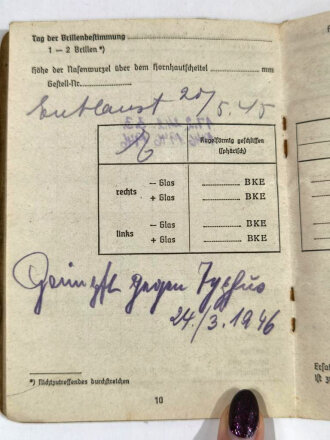 Tag der Brillenbestimmung
1 — 2 Brillen *)
Höhe der Nasenwurzel über dem Hornhautscheitel mm
Gestell-Nr.
Entlaust 20/5.45
Kugelförmig geschliffen
(sphärisch)
rechts — Glas BKE
+ Glas BKE
links — Glas BKE
+ Glas BKE
Geimpft gegen Typhus
24./3.1946
*) Nichtzutreffendes durchstreichen
10